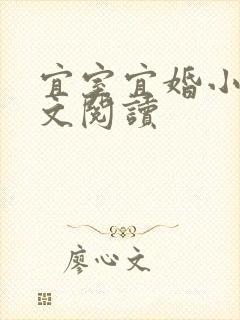 宜室宜婚小
文閱讀
廖心文